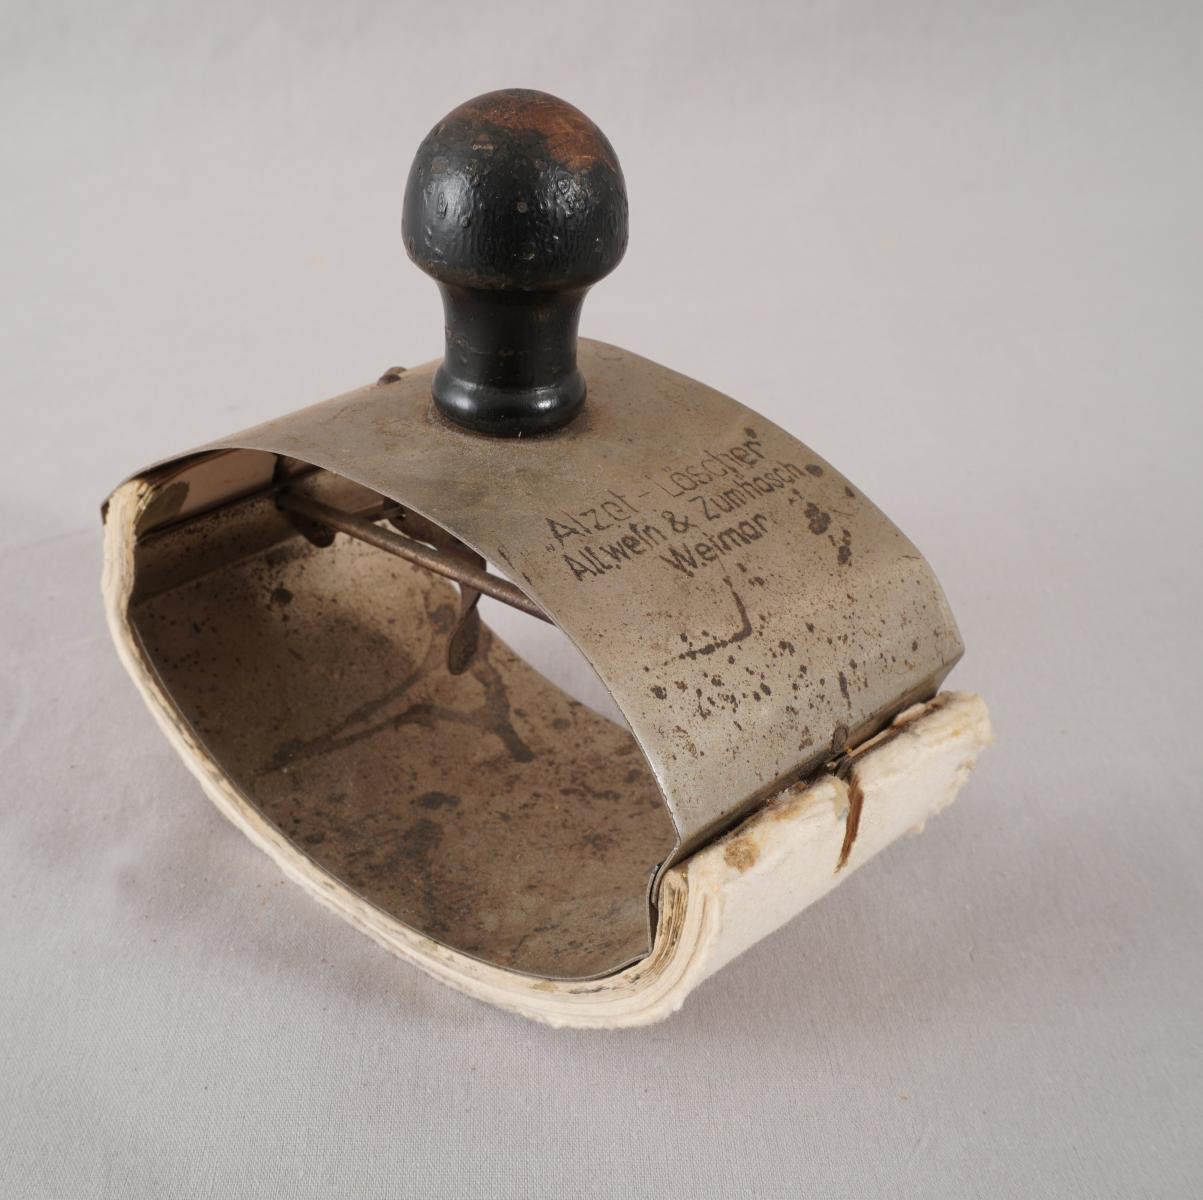 „Alzet-Löscher"
Allwein & Zumhasch
Weimar